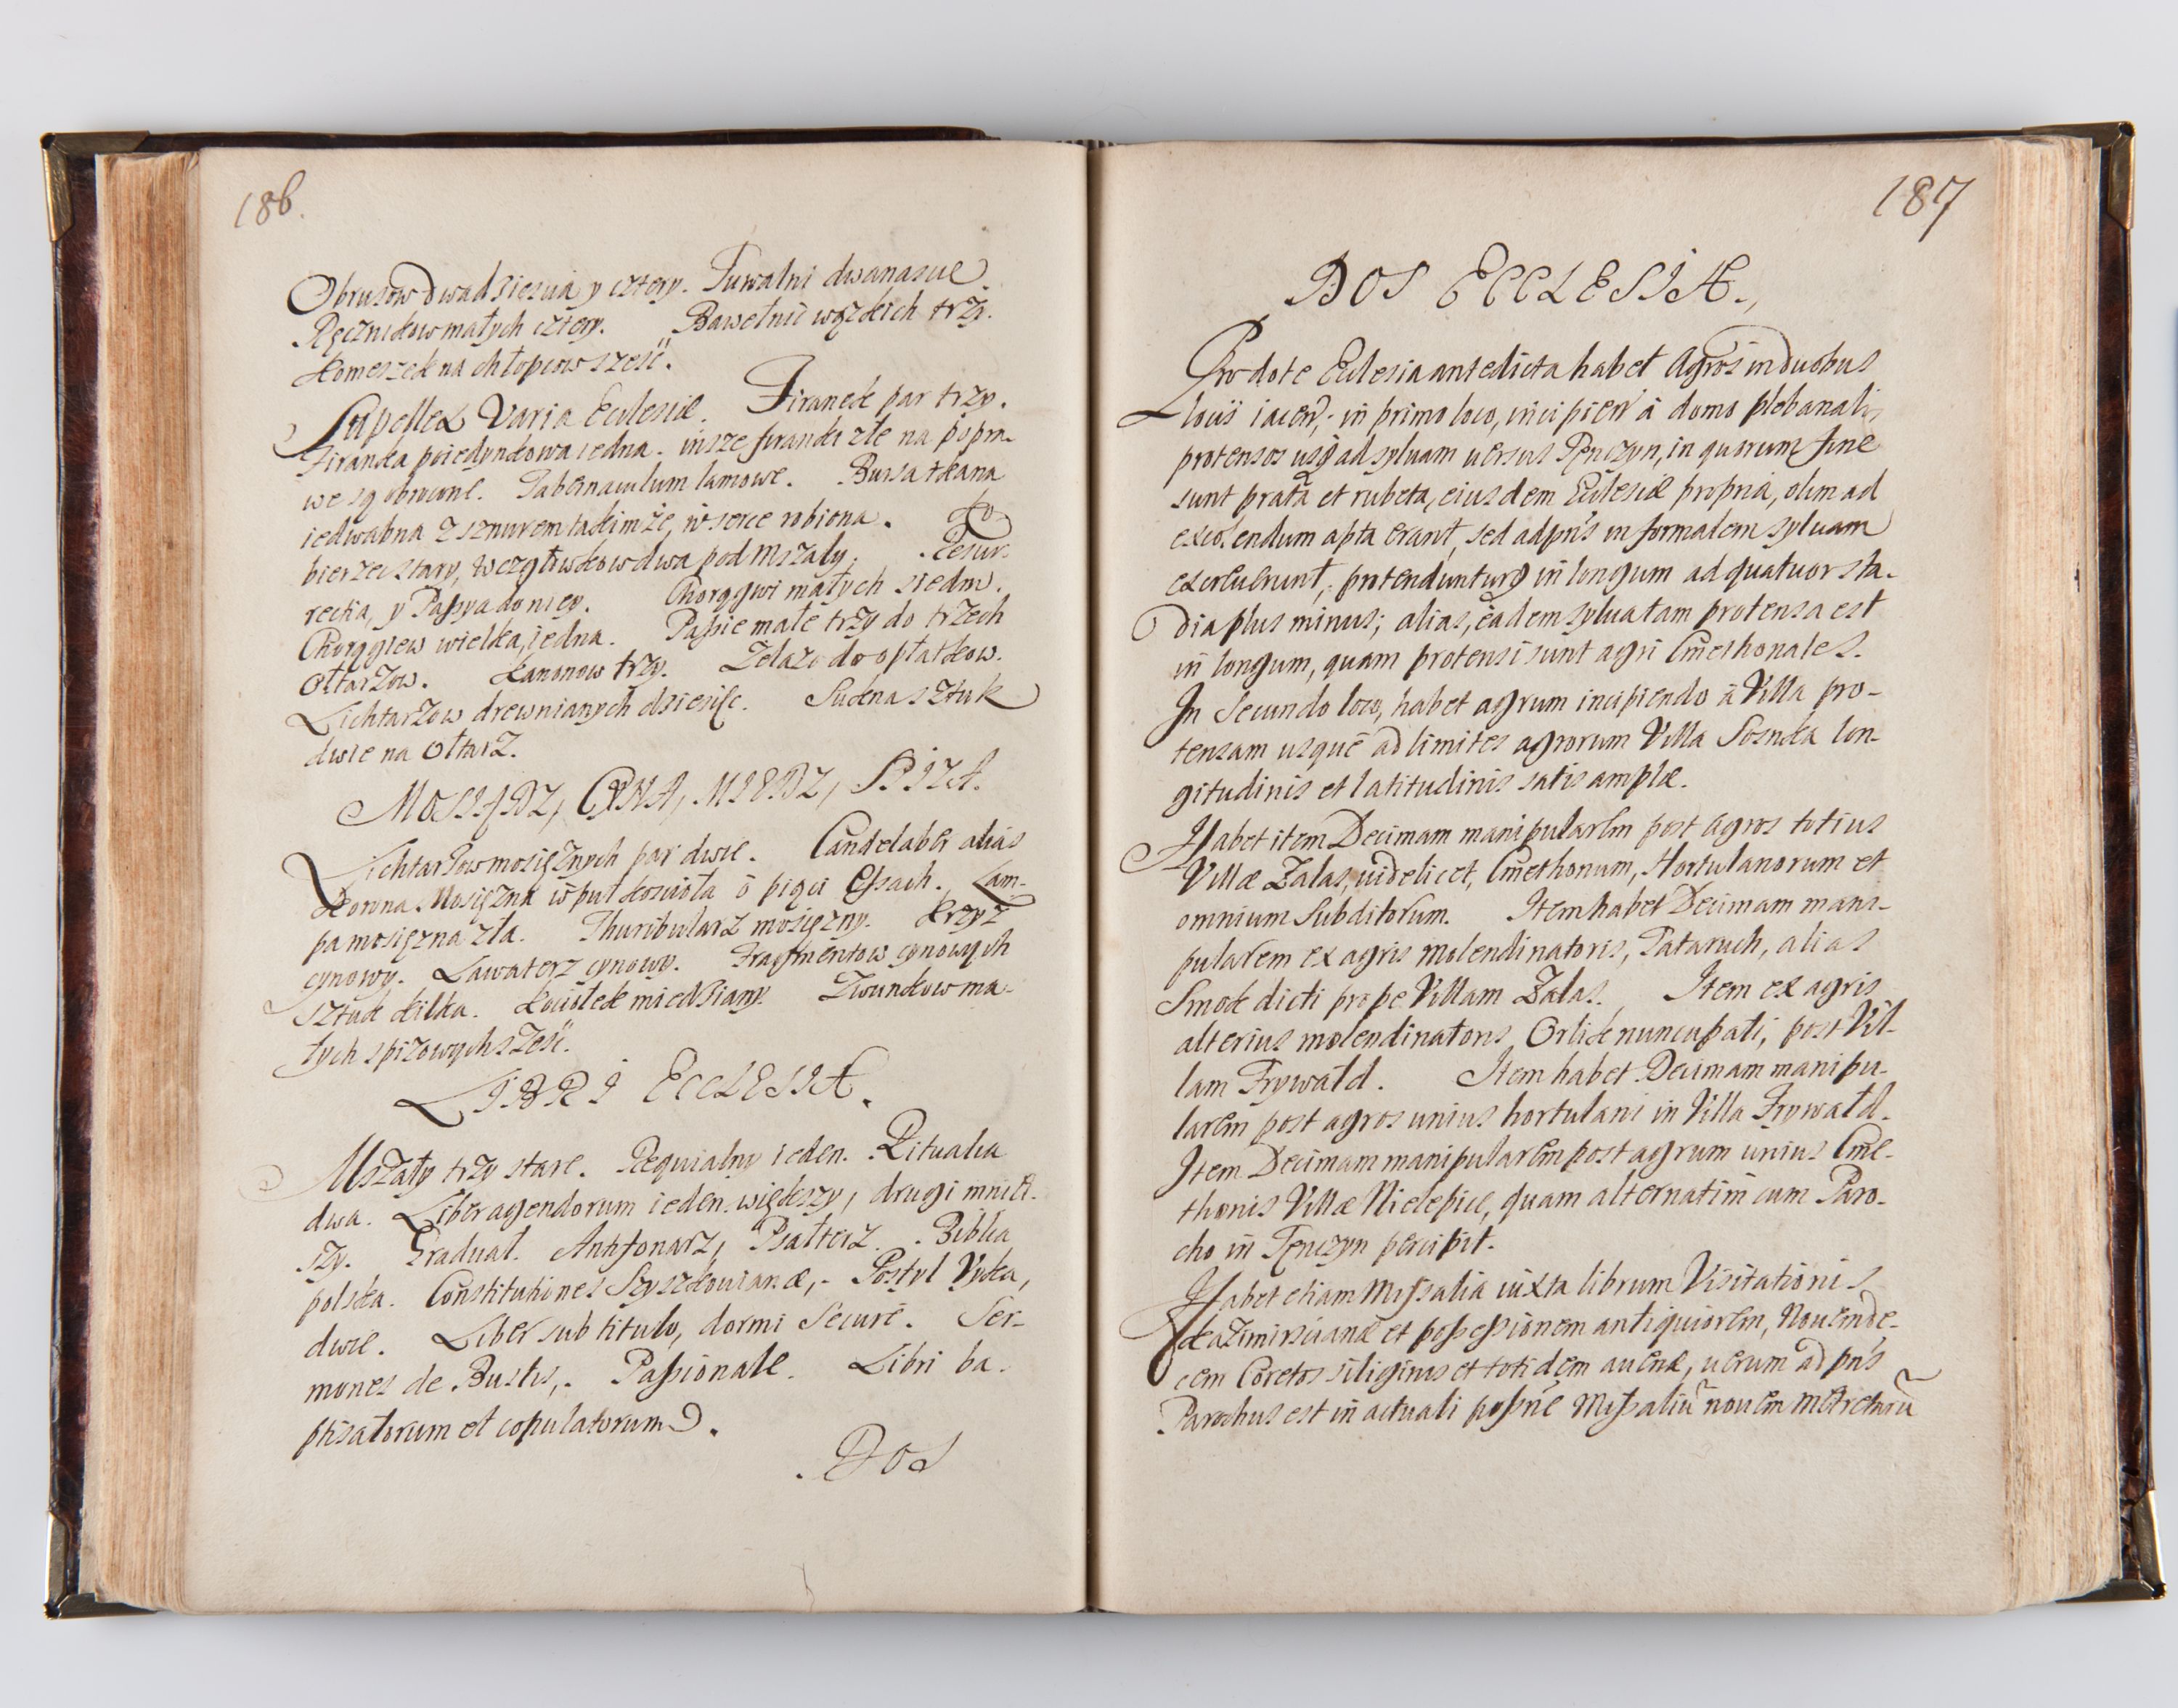 186.
Obrusow dwadziescia y cztery. Tuwalni dwanascie.
Ręcznikow małych cztery. Bawełnic wązkich trzy.
Komeszek na chłopcow sześć.
Supellex Varia Ecclesiæ. Firanek par trzy.
Firanka poiedynkowa iedna. insze firanki złe na popra-
we są obrocone. Tabernaculum lamowe. Bursa tkana
iedwabna z sznurem takimże, w serce robiona. Ko-
bierzec stary, Wezgłowkow dwa pod Mszały. Resur-
rectia, y Passya do niey. Chorągwi małych siedm.
Chorągiew wielka, iedna. Passie małe trzy do trzech
Ołtarzow. Kanonow trzy. Zelazo do opłatkow.
Lichtarzow drewnianych dziesięc. Sukna sztuk
dwie na Ołtarz.
MOSIĄDZ, CYNA, MIEDZ, SPIZA.
Lichtarzow mosiężnych par dwie. Candelaber alias
Korona Mosiężna w puł koscioła o pięci Essach. Lam-
pa mosiężna zła. Thuribularz mosiężny. Krzyż
cynowy. Lawaterz cynowy. Fragmentow cynowych
sztuk kilka. Kociołek miedziany. Dzwonkow ma-
łych spizowych sześć.
LIBRI ECCLESIÆ.
Mszały trzy stare. Requialny ieden. Ritualia
dwa. Liber agendorum ieden większy, drugi mniey-
szy. Graduał. Antyfonarz, Psałterz. Biblia
polska. Constitutiones Szyszkowianæ, Postyl Vyka,
dwie. Liber sub titulo, dormi Secure. Ser-
mones de Bustis, Passionale. Libri ba-
ptisatorum et copulatorum.
DOS
187
DOS ECCLESIÆ.
Pro dote Ecclesia antedicta habet Agros in duobus
locis iacen̄; in primo loco, incipien̄ à domo plebanali,
protensos usq̨ ad syluam uersus Tęnczyn, in quorum fine
sunt prata et rubeta, eiusdem Ecclesiæ propria, olim ad
excolendum apta erant, sed ad pn̄s in formalem syluam
excreuerunt, protendunturq̨ in longum ad quatuor sta-
dia plus minus; alias, eadem sylua tam protensa est
in longum, quam protensi sunt agri Cmethonales.
In Secundo loco, habet agrum incipiendo à Villa pro-
tensam usque ad limites agrorum Villa Sosnka lon-
gitudinis et latitudinis satis amplæ.
Habet item Decimam manipularem post Agros totius
Villæ Zalas, uidelicet, Cmethonum, Hortulanorum et
omnium Subditorum. Item habet Decimam mani-
pularem ex agris molendinatoris, Pataruch, alias
Smok dicti prope Villam Zalas. Item ex agris
alterius molendinatoris Orlik nuncupati, post Vil-
lam Frywałd. Item habet Decimam manipu-
larem post agros unius hortulani in Villa Frywałd.
Item Decimam manipularem post agrum unius Cme-
thonis Villæ Nielepice, quam alternatim cum Paro-
cho in Tęnczyn percipit.
Habet etiam Missalia iuxta librum Visitationis
Kazimirscianæ et possessionem antiquiorem, Nouende-
cem Coretos siliginis et totidem auenæ, uerum ad pn̄s
Parochus est in actuali possne Missaliū nouem metretarū